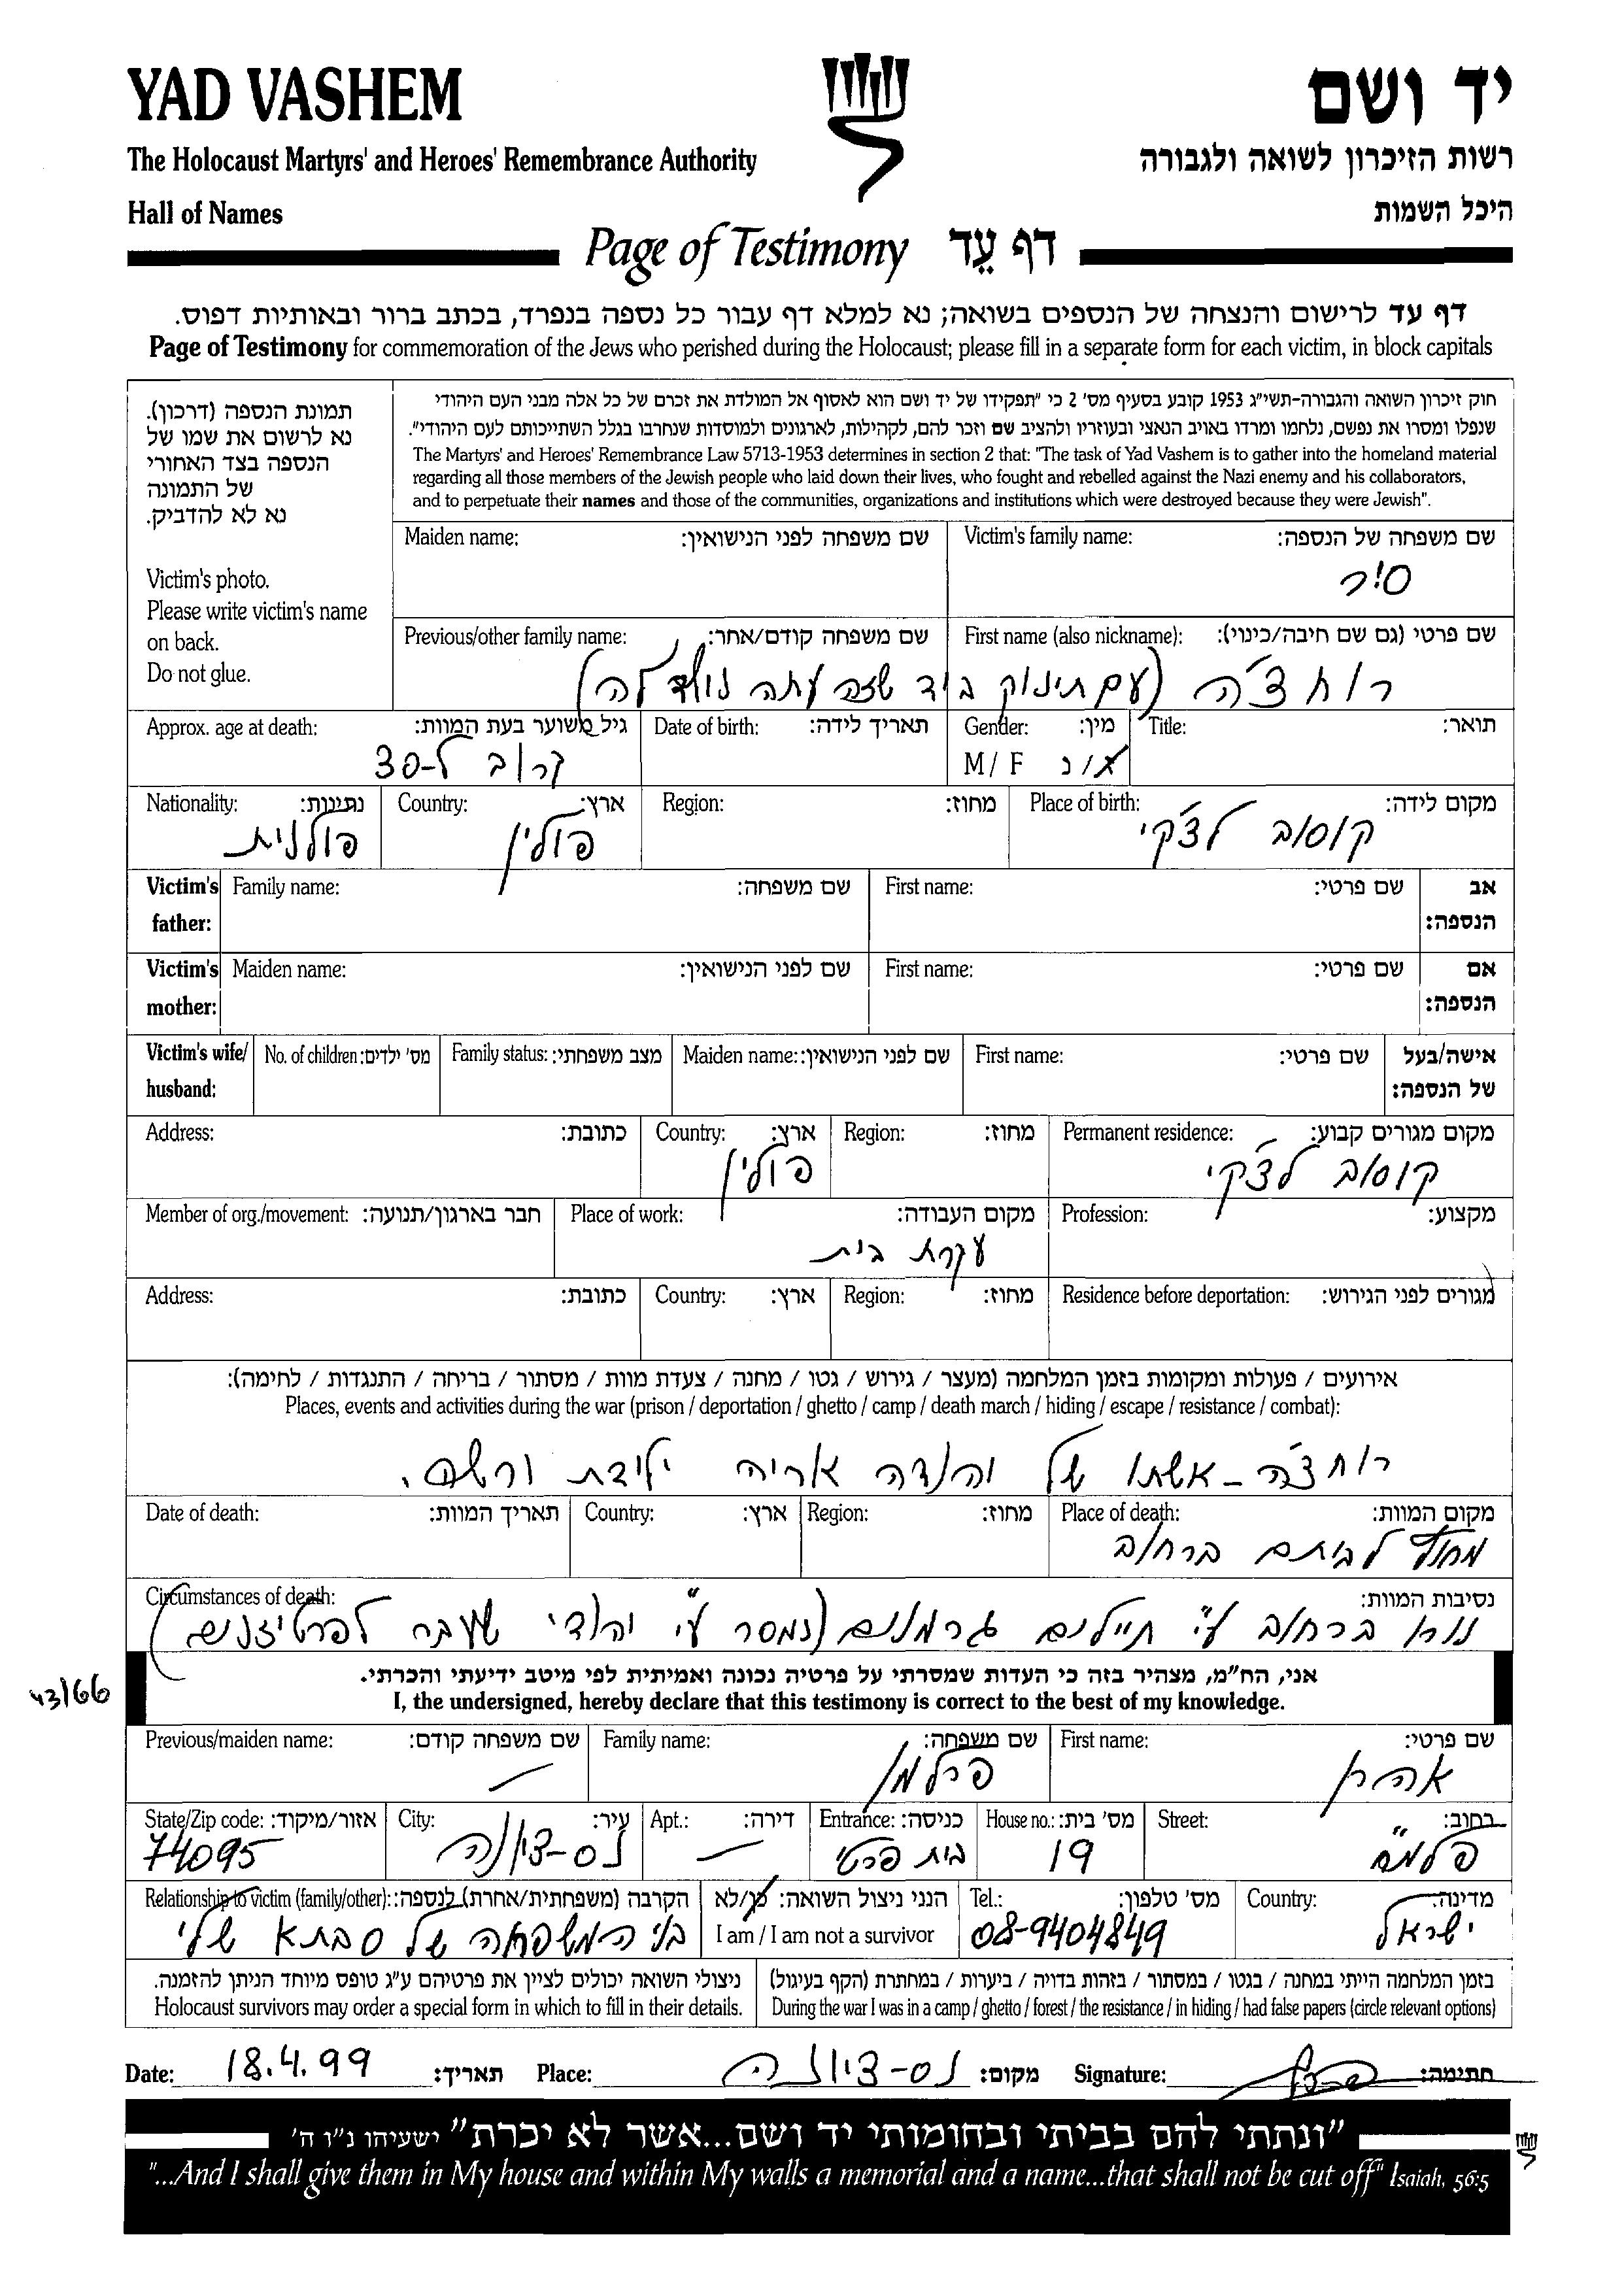 YAD VASHEM
יד ושם
The Holocaust Martyrs' and Heroes' Remembrance Authority
רשות הזיכרון לשואה ולגבורה
Hall of Names
היכל השמות
Page of Testimony דף עֵד
דף עד לרישום והנצחה של הנספים בשואה; נא למלא דף עבור כל נספה בנפרד, בכתב ברור ובאותיות דפוס.
Page of Testimony for commemoration of the Jews who perished during the Holocaust; please fill in a separate form for each victim, in block capitals
תמונת הנספה (דרכון).
נא לרשום את שמו של
הנספה בצד האחורי
של התמונה
נא לא להדביק.
Victim's photo.
Please write victim's name
on back.
Do not glue.
חוק זיכרון השואה והגבורה-תשי"ג 1953 קובע בסעיף מס' 2 כי "תפקידו של יד ושם הוא לאסוף אל המולדת את זכרם של כל אלה מבני העם היהודי
שנפלו ומסרו את נפשם, נלחמו ומרדו באויב הנאצי ובעוזריו ולהציב שם וזכר להם, לקהילות, לארגונים ולמוסדות שנחרבו בגלל השתייכותם לעם היהודי".
The Martyrs' and Heroes' Remembrance Law 5713-1953 determines in section 2 that: "The task of Yad Vashem is to gather into the homeland material
regarding all those members of the Jewish people who laid down their lives, who fought and rebelled against the Nazi enemy and his collaborators,
and to perpetuate their names and those of the communities, organizations and institutions which were destroyed because they were Jewish".
Maiden name: שם משפחה לפני הנישואין: Victim's family name: שם משפחה של הנספה:
סיר
Previous/other family name: שם משפחה קודם/אחר: First name (also nickname): שם פרטי (גם שם חיבה/כינוי):
רוחצ'ה (עם תינוק ביד שזה עתה נולד לה)
Approx. age at death: גיל משוער בעת המוות: Date of birth: תאריך לידה: Gender: מין: Title: תואר:
קרוב ל-30 M / F ז/נ
Nationality: נתינות: Country: ארץ: Region: מחוז: Place of birth: מקום לידה:
פולנית פולין קוסוב לצקי
Victim's father: Family name: שם משפחה: First name: שם פרטי: אב הנספה:
Victim's mother: Maiden name: שם לפני הנישואין: First name: שם פרטי: אם הנספה:
Victim's wife/ husband: No. of children: מס' ילדים: Family status: מצב משפחתי: Maiden name: שם לפני הנישואין: First name: שם פרטי: אישה/בעל של הנספה:
Address: כתובת: Country: ארץ: Region: מחוז: Permanent residence: מקום מגורים קבוע:
פולין קוסוב לצקי
Member of org./movement: חבר בארגון/תנועה: Place of work: מקום העבודה: Profession: מקצוע:
עקרת בית
Address: כתובת: Country: ארץ: Region: מחוז: Residence before deportation: מגורים לפני הגירוש:
אירועים / פעולות ומקומות בזמן המלחמה (מעצר / גירוש / גטו / מחנה / צעדת מוות / מסתור / בריחה / התנגדות / לחימה):
Places, events and activities during the war (prison / deportation / ghetto / camp / death march / hiding / escape / resistance / combat):
רוחצ'ה - אשתו של יהודה אריה ילידת ורשה.
Date of death: תאריך המוות: Country: ארץ: Region: מחוז: Place of death: מקום המוות:
מחוץ לביתם ברחוב
Circumstances of death: נסיבות המוות:
נורו ברחוב ע"י חיילים גרמנים (נמסר ע"י יהודי שעבר לפרטיזנים)
אני, הח"מ, מצהיר בזה כי העדות שמסרתי על פרטיה נכונה ואמיתית לפי מיטב ידיעתי והכרתי.
43/66
I, the undersigned, hereby declare that this testimony is correct to the best of my knowledge.
Previous/maiden name: שם משפחה קודם: Family name: שם משפחה: First name: שם פרטי:
פרלמן אהרן
State/Zip code: אזור/מיקוד: City: עיר: Apt.: דירה: Entrance: כניסה: House no.: מס' בית: Street: רחוב:
74095 נס-ציונה בית פרטי 19 פלמ"ח
Relationship to victim (family/other): הקרבה (משפחתית/אחרת) לנספה: הנני ניצול השואה: כן/לא Tel.: מס' טלפון: Country: מדינה:
בני המשפחה של סבתא שלי I am / I am not a survivor 08-9404849 ישראל
ניצולי השואה יכולים לציין את פרטיהם ע"ג טופס מיוחד הניתן להזמנה. בזמן המלחמה הייתי במחנה / בגטו / במסתור / בזהות בדויה / ביערות / במחתרת (הקף בעיגול)
Holocaust survivors may order a special form in which to fill in their details. During the war I was in a camp / ghetto / forest / the resistance / in hiding / had false papers (circle relevant options)
Date: 18.4.99 תאריך: Place: נס-ציונה מקום: Signature: חתימה:
"ונתתי להם בביתי ובחומותי יד ושם...אשר לא יכרת" ישעיהו נ"ו ה'
"...And I shall give them in My house and within My walls a memorial and a name...that shall not be cut off" Isaiah, 56:5